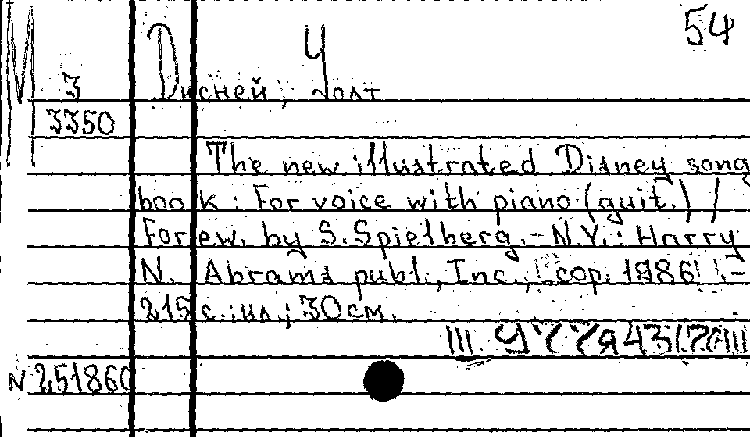 54
М
3
3350
Дисней, Уолт
The new illustrated Disney song
book : For voice with piano (guit.) /
Forew. by S. Spielberg. - N.Y. : Harry
N. Abrams publ., Inc., cop. 1986. -
215 с. : ил. ; 30 см.
N 251860